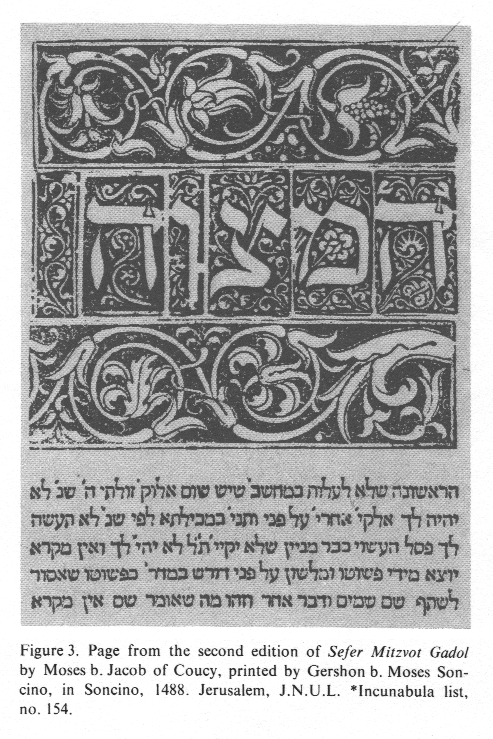 המצוה
הראשונה שלא לעלות במחשב׳ שיש שום אלוק׳ זולתי ה׳ שנ׳ לא
יהיה לך אלקי׳ אחרי׳ על פני ותני׳ במכילתא לפי שנ׳ לא תעשה
לך פסל העשוי כבר מניין שלא יקיי׳ ת״ל לא יהי׳ לך ואין מקרא
יוצא מידי פשוטו ומלשון על פני דורש במדר׳ כפשוטו שאסור
לשתף שם שמים ודבר אחר וזהו מה שאומר שם אין מקרא
Figure 3. Page from the second edition of Sefer Mitzvot Gadol
by Moses b. Jacob of Coucy, printed by Gershon b. Moses Son-
cino, in Soncino, 1488. Jerusalem, J.N.U.L. *Incunabula list,
no. 154.